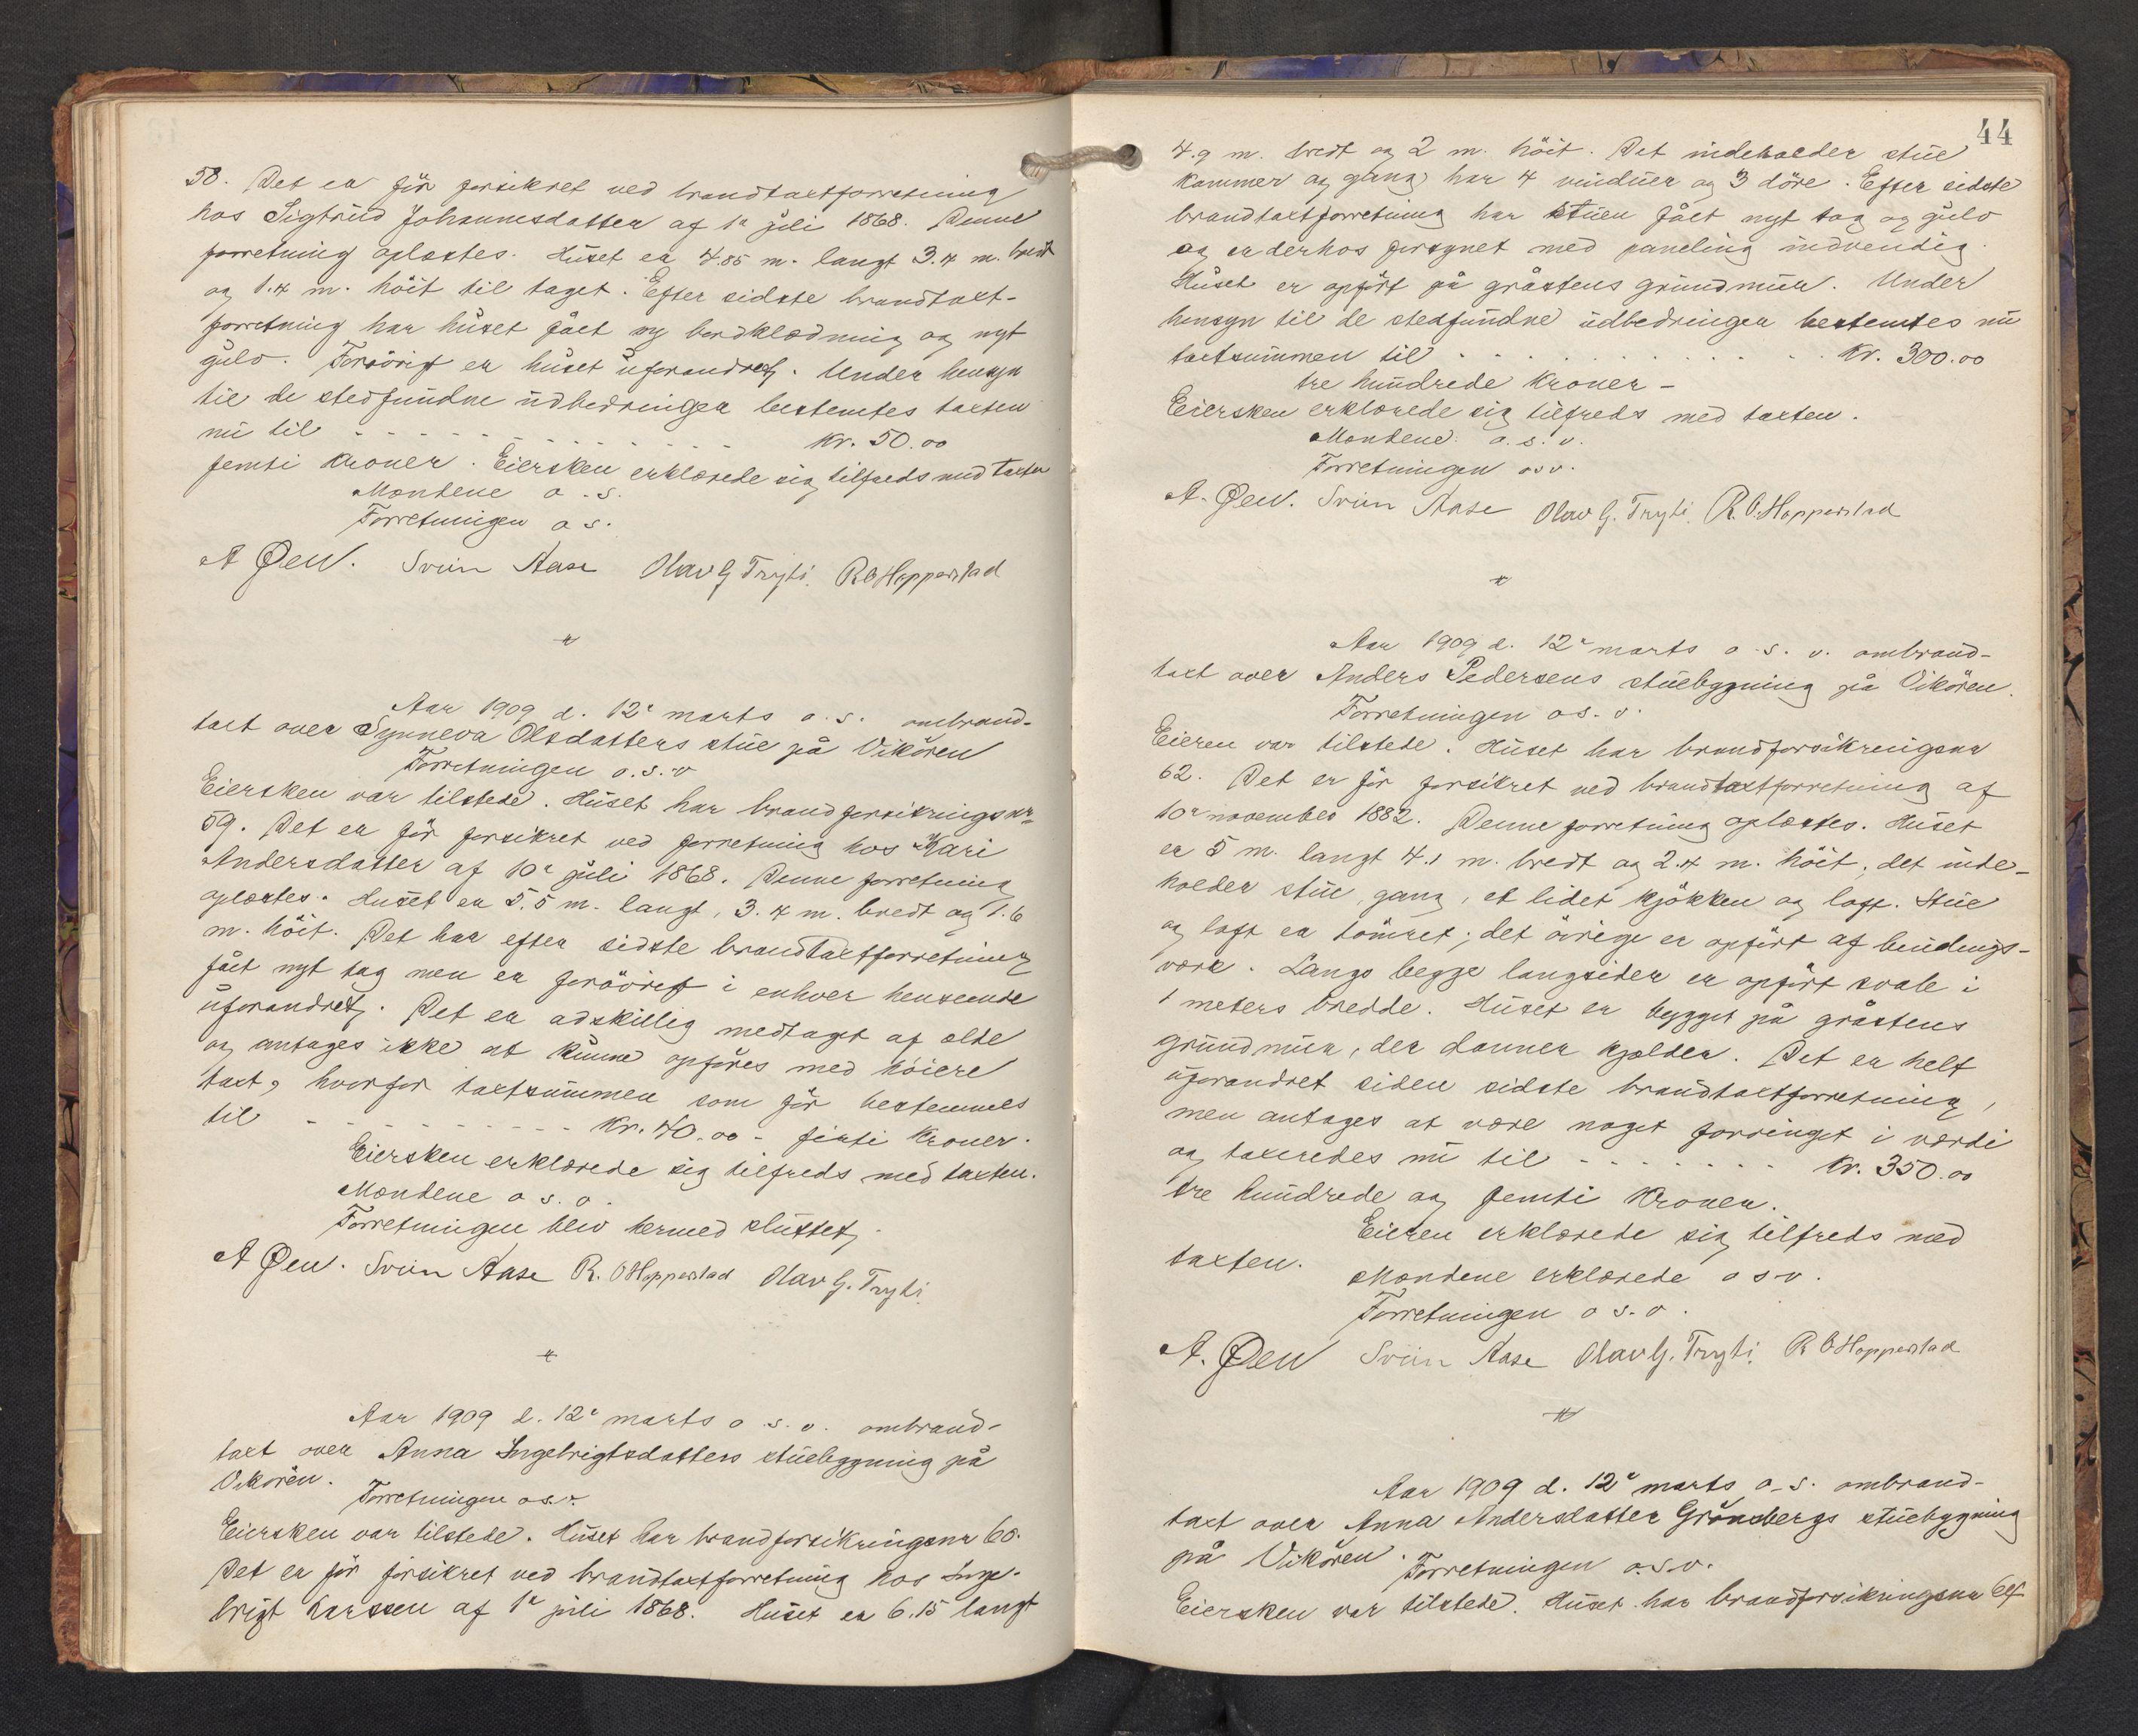 58. Det er før forsikret ved brandtaxtforretning
hos Sigtrud Johannesdatter af 1ª juli 1868. Denne
forretning oplæstes. Huset er 4.85 m. langt 3.4 m. bredt
og 1.4 m. höit til taget. Efter sidste brandtaxt-
forretning har huset fået ny bordklædning og nyt
gulv. Forövrigt er huset uforandret. Under hensyn
til de stedfundne udbedringer bestemtes taxten
nu til - - - - - - - - - - - - kr. 50.00
femti kroner. Eiersken erklærede sig tilfreds med taxten
Mændene o. s.
Forretningen o s.
A Øen. Svein Aase Olav G Tryti. R O Hopperstad
Aar 1909 d. 12ª marts o. s. ombrand-
taxt over Synneva Olsdatters stue på Vikören
Forretningen o. s. v
Eiersken var tilstede. Huset har brandforsikringsnr
59. Det er før forsikret ved forretning hos Kari
Andersdatter af 10ª juli 1868. Denne forretning
oplæstes. Huset er 5.5 m. langt, 3.4 m. bredt og 1.6
m. höit. Det har efter sidste brandtaxtforretning
fået nyt tag men er forövrigt i enhver henseende
uforandret. Det er adskillig medtaget af ælde
og antages ikke at kunne opføres med höiere
taxt, hvorfor taxtsummen som før bestemmes
til - - - - - - - - - - kr. 40.00 - firti kroner.
Eiersken erklærede sig tilfreds med taxten.
Mændene o s. v.
Forretningen blev hermed sluttet.
A Øen. Svein Aase R. O Hopperstad Olav G. Tryti.
Aar 1909 d. 12ª marts o. s. v. ombrand-
taxt over Anna Ingebrigtsdatters stuebygning på
Vikören. Forretningen o s. v.
Eiersken var tilstede. Huset har brandforsikringsnr 60.
Det er før forsikret ved brandtaxtforretning hos Inge-
brigt Larssen af 1ª juli 1868. Huset er 6.15 langt
44
4.9 m. bredt og 2 m. höit. Det indeholder stue
kammer og gang, har 4 vinduer og 3 döre. Efter sidste
brandtaxtforretning har stuen fået nyt tag og gulv
og er derhos forsynet med paneling indvendig.
Huset er opført på gråstens grundmur. Under
hensyn til de stedfundne udbedringer bestemtes nu
taxtsummen til . . . . . . . . . . . kr. 300.00
tre hundrede kroner -
Eiersken erklærede sig tilfreds med taxten.
Mændene o. s. v.
Forretningen o s v.
A. Øen. Svein Aase Olav G. Tryti. R. O. Hopperstad
Aar 1909 d. 12ª marts o. s. v. ombrand-
taxt over Anders Pedersens stuebygning på Vikören.
Forretningen o s. v.
Eieren var tilstede. Huset har brandforsikringsnr
62. Det er før forsikret ved brandtaxtforretning af
10ª november 1882. Denne forretning oplæstes. Huset
er 5 m. langt 4.1 m. bredt og 2.4 m. höit; det inde-
holder stue, gang, et lidet kjökken og loft. Stue
og loft er tömret; det övrige er opført af bindings-
værk. Langs begge langsider er opført svale i
1 meters bredde. Huset er bygget på gråstens
grundmur, der danner kjælder. Det er helt
uforandret siden sidste brandtaxtforretning,
men antages at være noget forringet i værdi
og taxeredes nu til - - - - - - - kr. 350.00
tre hundrede og femti kroner.
Eieren erklærede sig tilfreds med
taxten.
Mændene erklærede o s v.
Forretningen o s. v.
A. Øen Svein Aase Olav G. Tryti. R O Hopperstad
Aar 1909 d. 12ª marts o. s. ombrand-
taxt over Anna Andersdatter Grönsbergs stuebygning
på Vikören. Forretningen o. s. v.
Eiersken var tilstede. Huset har brandforsikringsnr 64